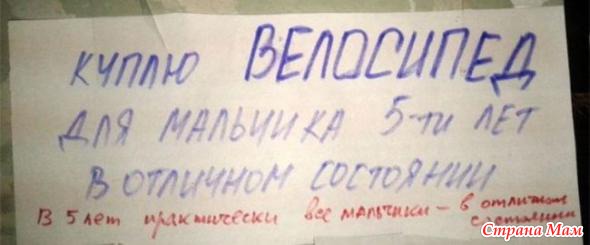 КУПЛЮ ВЕЛОСИПЕД
ДЛЯ МАЛЬЧИКА 5-ти ЛЕТ
В ОТЛИЧНОМ СОСТОЯНИИ
В 5 лет практически все мальчики – в отличном
состоянии
Страна Мам